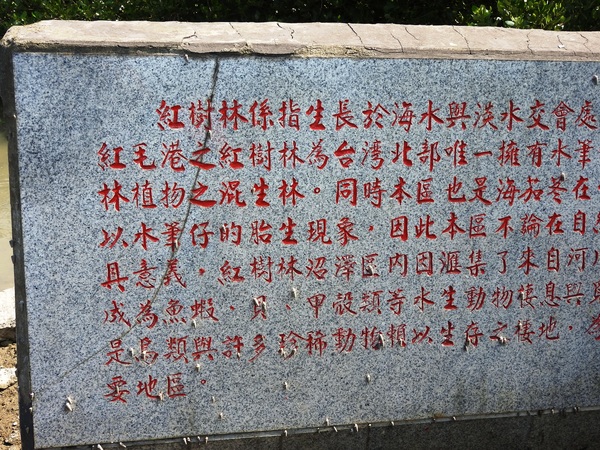 紅樹林係指生長於海水與淡水交會處
紅毛港之紅樹林為台灣北部唯一擁有水筆
林植物之混生林。同時本區也是海茄苳在
以水筆仔的胎生現象,因此本區不論在自
具意義,紅樹林沼澤區內因滙集了來自河
成為魚蝦、貝、甲殼類等水生動物棲息與
是鳥類與許多珍稀動物賴以生存之棲地,
要地區。